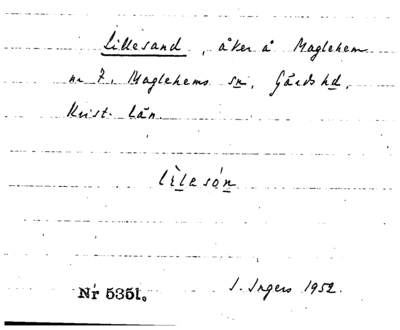 Lillesand, åker å Maglehem
nr 7, Maglehems sn, Gärds hd,
Krist. län.
lìlesón
Nr 5351.
I. Ingers 1952.